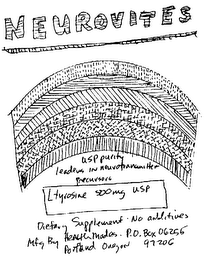 NEUROVITES
USP purity
leaders in neurotransmitter
precursors
L tyrosine 500mg USP
Dietary Supplement · No additives
Mfg By Health Mades · P.O. Box 06256
Portland Oregon 97206